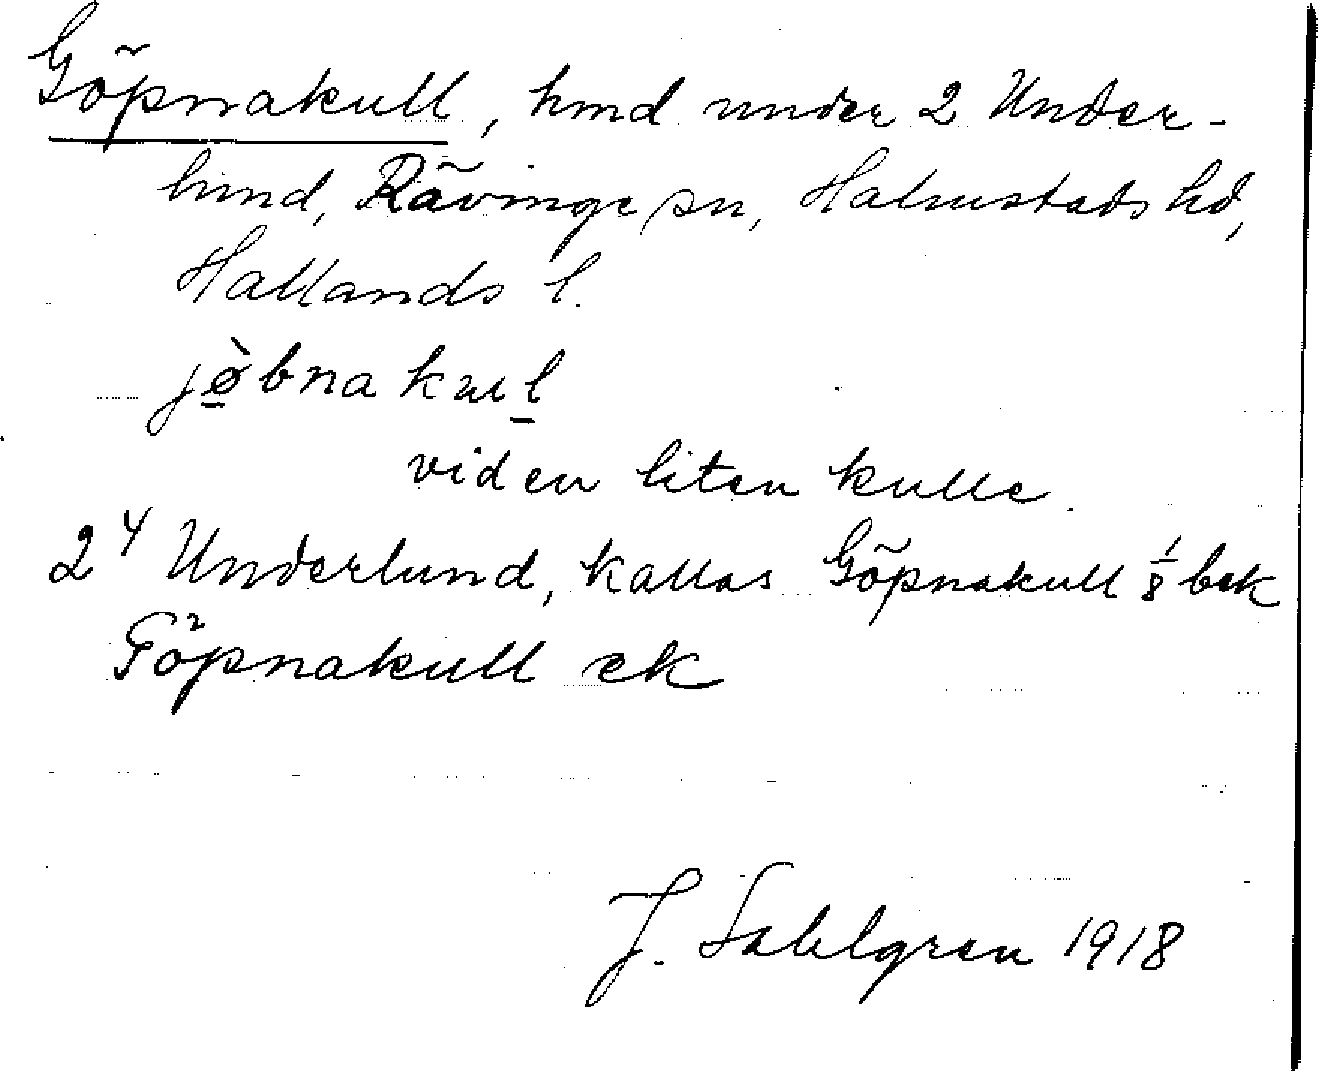 Göpnakull, hmd under 2 Under-
lund, Rävinge sn, Halmstads hd,
Hallands l.
jø̀bnakul
vid en liten kulle.
2⁴ Underlund, kallas Göpnakull 1/8 bek
Göpnakull ek
J. Sahlgren 1918